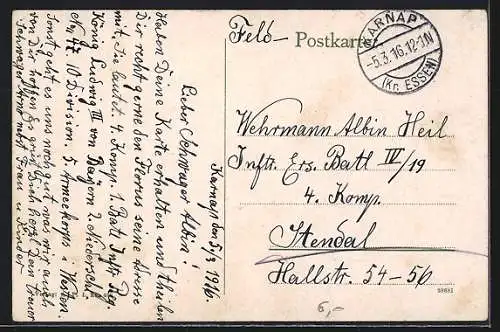 Karnap den 5/3 1916.
Lieber Schwager Albin!
Haben Deine Karte erhalten und theilen
Dir recht gerne den Ferrus seine Adresse
mit, Sie lautet. 4. Komp. 1. Batl. Inftr. Reg
König Ludwig III von Bayern 2. Niederschl.
No 47 10 Division. 5. Armeekorps i Westen.
Sonst geht es uns noch gut was wir auch
von Dir hoffen. Es grüßt Dich herzl. Dein treuer
Schwager Arno nebst Frau u Kinder
Feld- Postkarte
KARNAP
-5.3.16.12-1N
(Kr. ESSEN)
Wehrmann Albin Heil
Inftr. Ers. Batl IV/19
4. Komp.
Stendal
Hallstr. 54-56
6,-